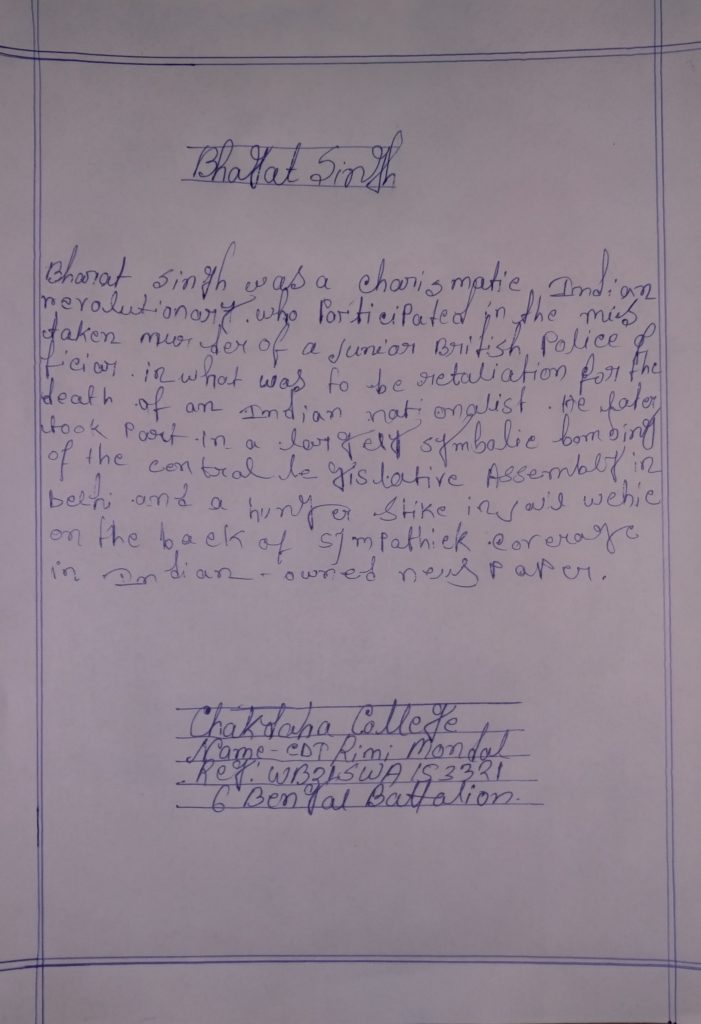 Bhagat Singh
Bharat singh was a charismatic Indian
revolutionary. who Porticipated in the mis
taken mur der of a junior British Police of
ficiar. in what was to be retaliation for the
death of an Indian nati onalist. He later
took Part in a largely symbolic bombing
of the central le gislative Assembly in
Delhi and a hunger Stike in jail wehic
on the back of sympathick coverage
in Indian - owned news paper.
Chakdaha College
Name - CDT Rimi Mondal
Reg: WB21SWA153321
6 Bengal Battalion.